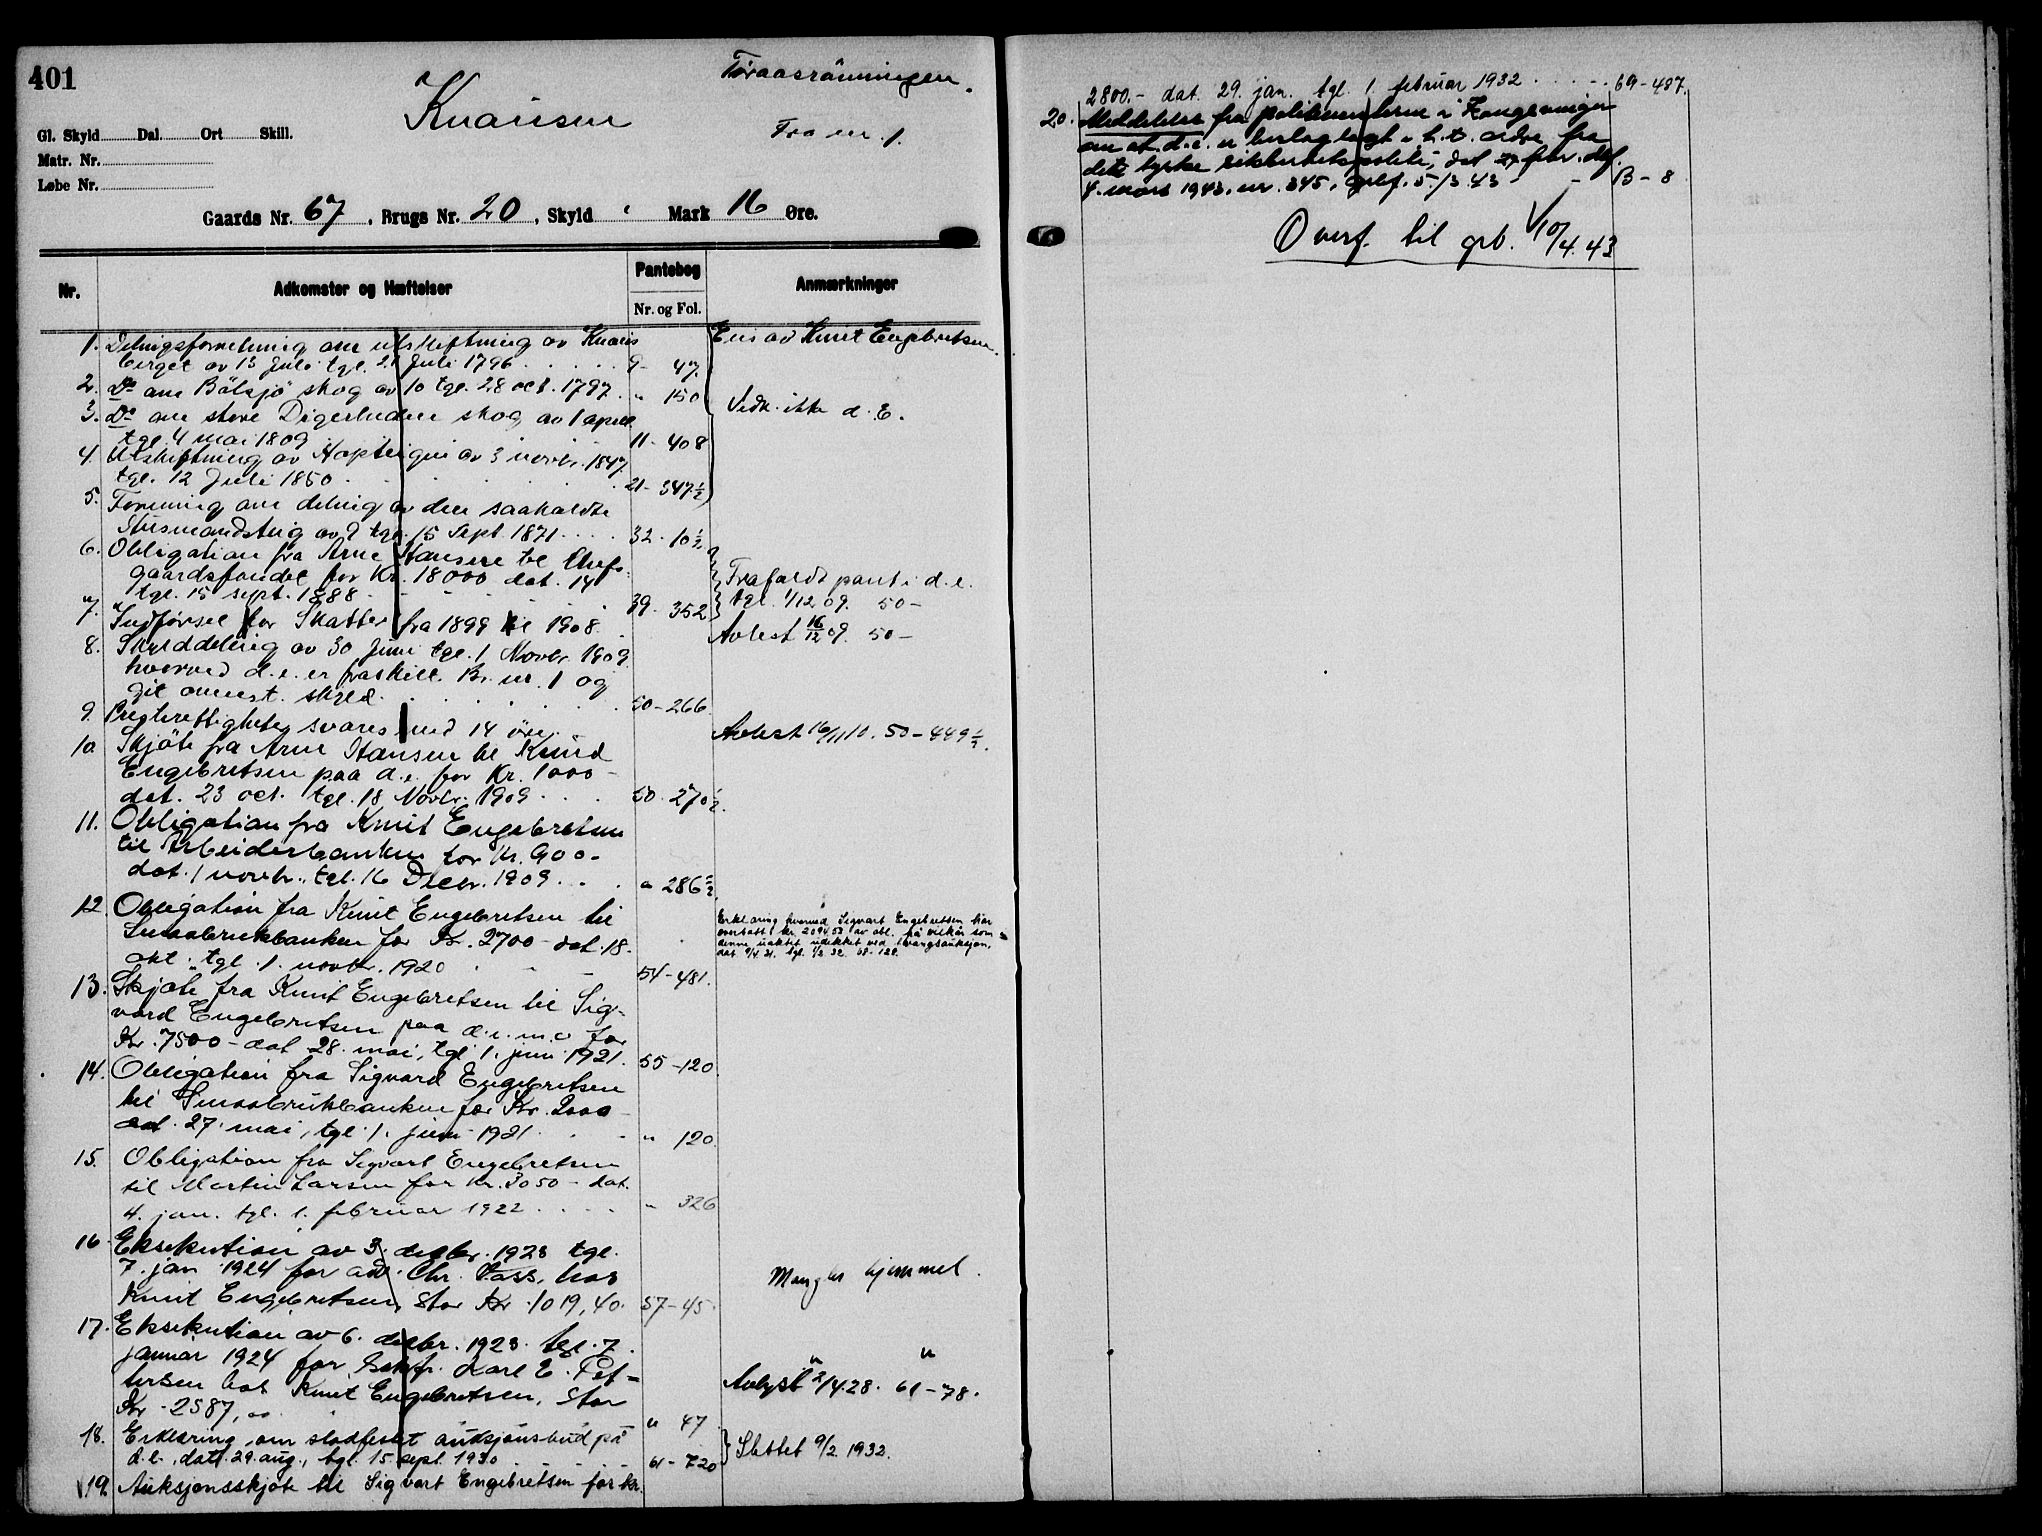 401
Knausen
Föraasrönningen.
Fra nr. 1.
Gl. Skyld Dal. Ort Skill.
Matr. Nr.
Løbe Nr.
Gaards Nr. 67, Brugs Nr. 20, Skyld Mark 16 Øre.
Nr.
Adkomster og Hæftelser
Pantebog
Nr. og Fol.
Anmærkninger
1. Delingsforretning om utskiftning av Knaus
berget av 13 Juli tgl. 21 Juli 1796 9- 47.
Eies av Knut Engebretsen.
2. Do om Bölsjö skog av 10 tgl. 28 oct. 1797. " 150
3. Do om store Digerluden skog av 1 april
tgl. 4 mai 1809 11- 408
Vedk. ikke d. E.
4. Utskiftning av av 3 novbr. 1847.
tgl. 12 Juli 1850 21- 347½
5. Forening om deling av den saakaldte
av 9 tgl. 15 Sept. 1871 32. 10½
6. Obligation fra Arne Hansen til
gaardsfondet for Kr. 18000 dat. 14
tgl. 15 sept. 1888 39. 352
Frafaldt pant i d. e.
tgl. 1/12 09. 50-
7. Indförsel for Skatter fra 1899 til 1908.
Avlest 16/12 09. 50-
8. Skylddeling av 30 Juni tgl. 1 Novbr. 1909
hvorved d. e. er fraskilt Br. nr. 1 og
git ovennt. skyld. 50-266.
9. Bygslerettigheten svares med 14 öre.
Avlest 16/11 10. 50-449½.
10 Skjöte fra Arne Hansen til Knud
Engebretsen paa d. e. for Kr. 1000-
dat. 23 oct. tgl. 18 Novbr. 1909 50. 270½.
11. Obligation fra Knut Engebretsen
til Arbeiderbanken for Kr. 900-
dat. 1 novbr., tgl. 16 Decbr. 1909 " 286½
12. Obligation fra Knut Engebretsen til
Smaabrukbanken for Kr. 2700- dat. 18.
okt., tgl. 1. novbr. 1920 54-481.
Erklæring hvorved Sigvart Engebretsen har
overtatt kr. 2094.53 av obl. på vilkår som
denne inntil udekket ved tvangsauksjon,
dat. 9/4 31. tgl. 1/2 32. 69-128.
13. Skjöte fra Knut Engebretsen til Sig-
vard Engebretsen paa d. e. m. o for
Kr. 7500- dat 28. mai, tgl 1. juni 1921. 55-120.
14. Obligation fra Sigvard Engebretsen
til Smaabrukbanken for Kr. 2000
dat. 27. mai, tgl 1. juni 1921. " 120.
15. Obligation fra Sigvart Engebretsen
til Martin Larsen for Kr. 3050- dat.
4. jan. tgl. 1. februar 1922 " 326
16. Eksekution av 3. decbr. 1923 tgl.
7. jan 1924 for adv. Chr. hos
Knut Engebretsen, stor Kr 1019,40. 57-45.
Mangler hjemmel.
17. Eksekution av 6. decbr. 1923. tgl. 7.
januar 1924 for Karl E. Pet-
tersen hos Knut Engebretsen, stor
Kr. 2587,00 " 47
" "
Avlyst 2/4.28. 61-78.
18. Erklæring om stadfestet auksjonsbud på
d. e., dat. 29. aug., tgl. 15. sept. 1930 61-720
Slettet 9/2 1932.
19. Auksjonsskjöte til Sigvart Engebretsen for kr.
2800.- dat. 29. jan. tgl. 1. februar 1932 69-487.
20. Meddelelse fra politimesteren i Kongsvinger
om at d. e. er beslaglagt i h. t. ordre fra
det tyske sikkerhetspoliti, dat. febr. dgf.
4. mars 1943. nr. 345, 5/3.43 B-8
Overf. til grb. V 10/4.43